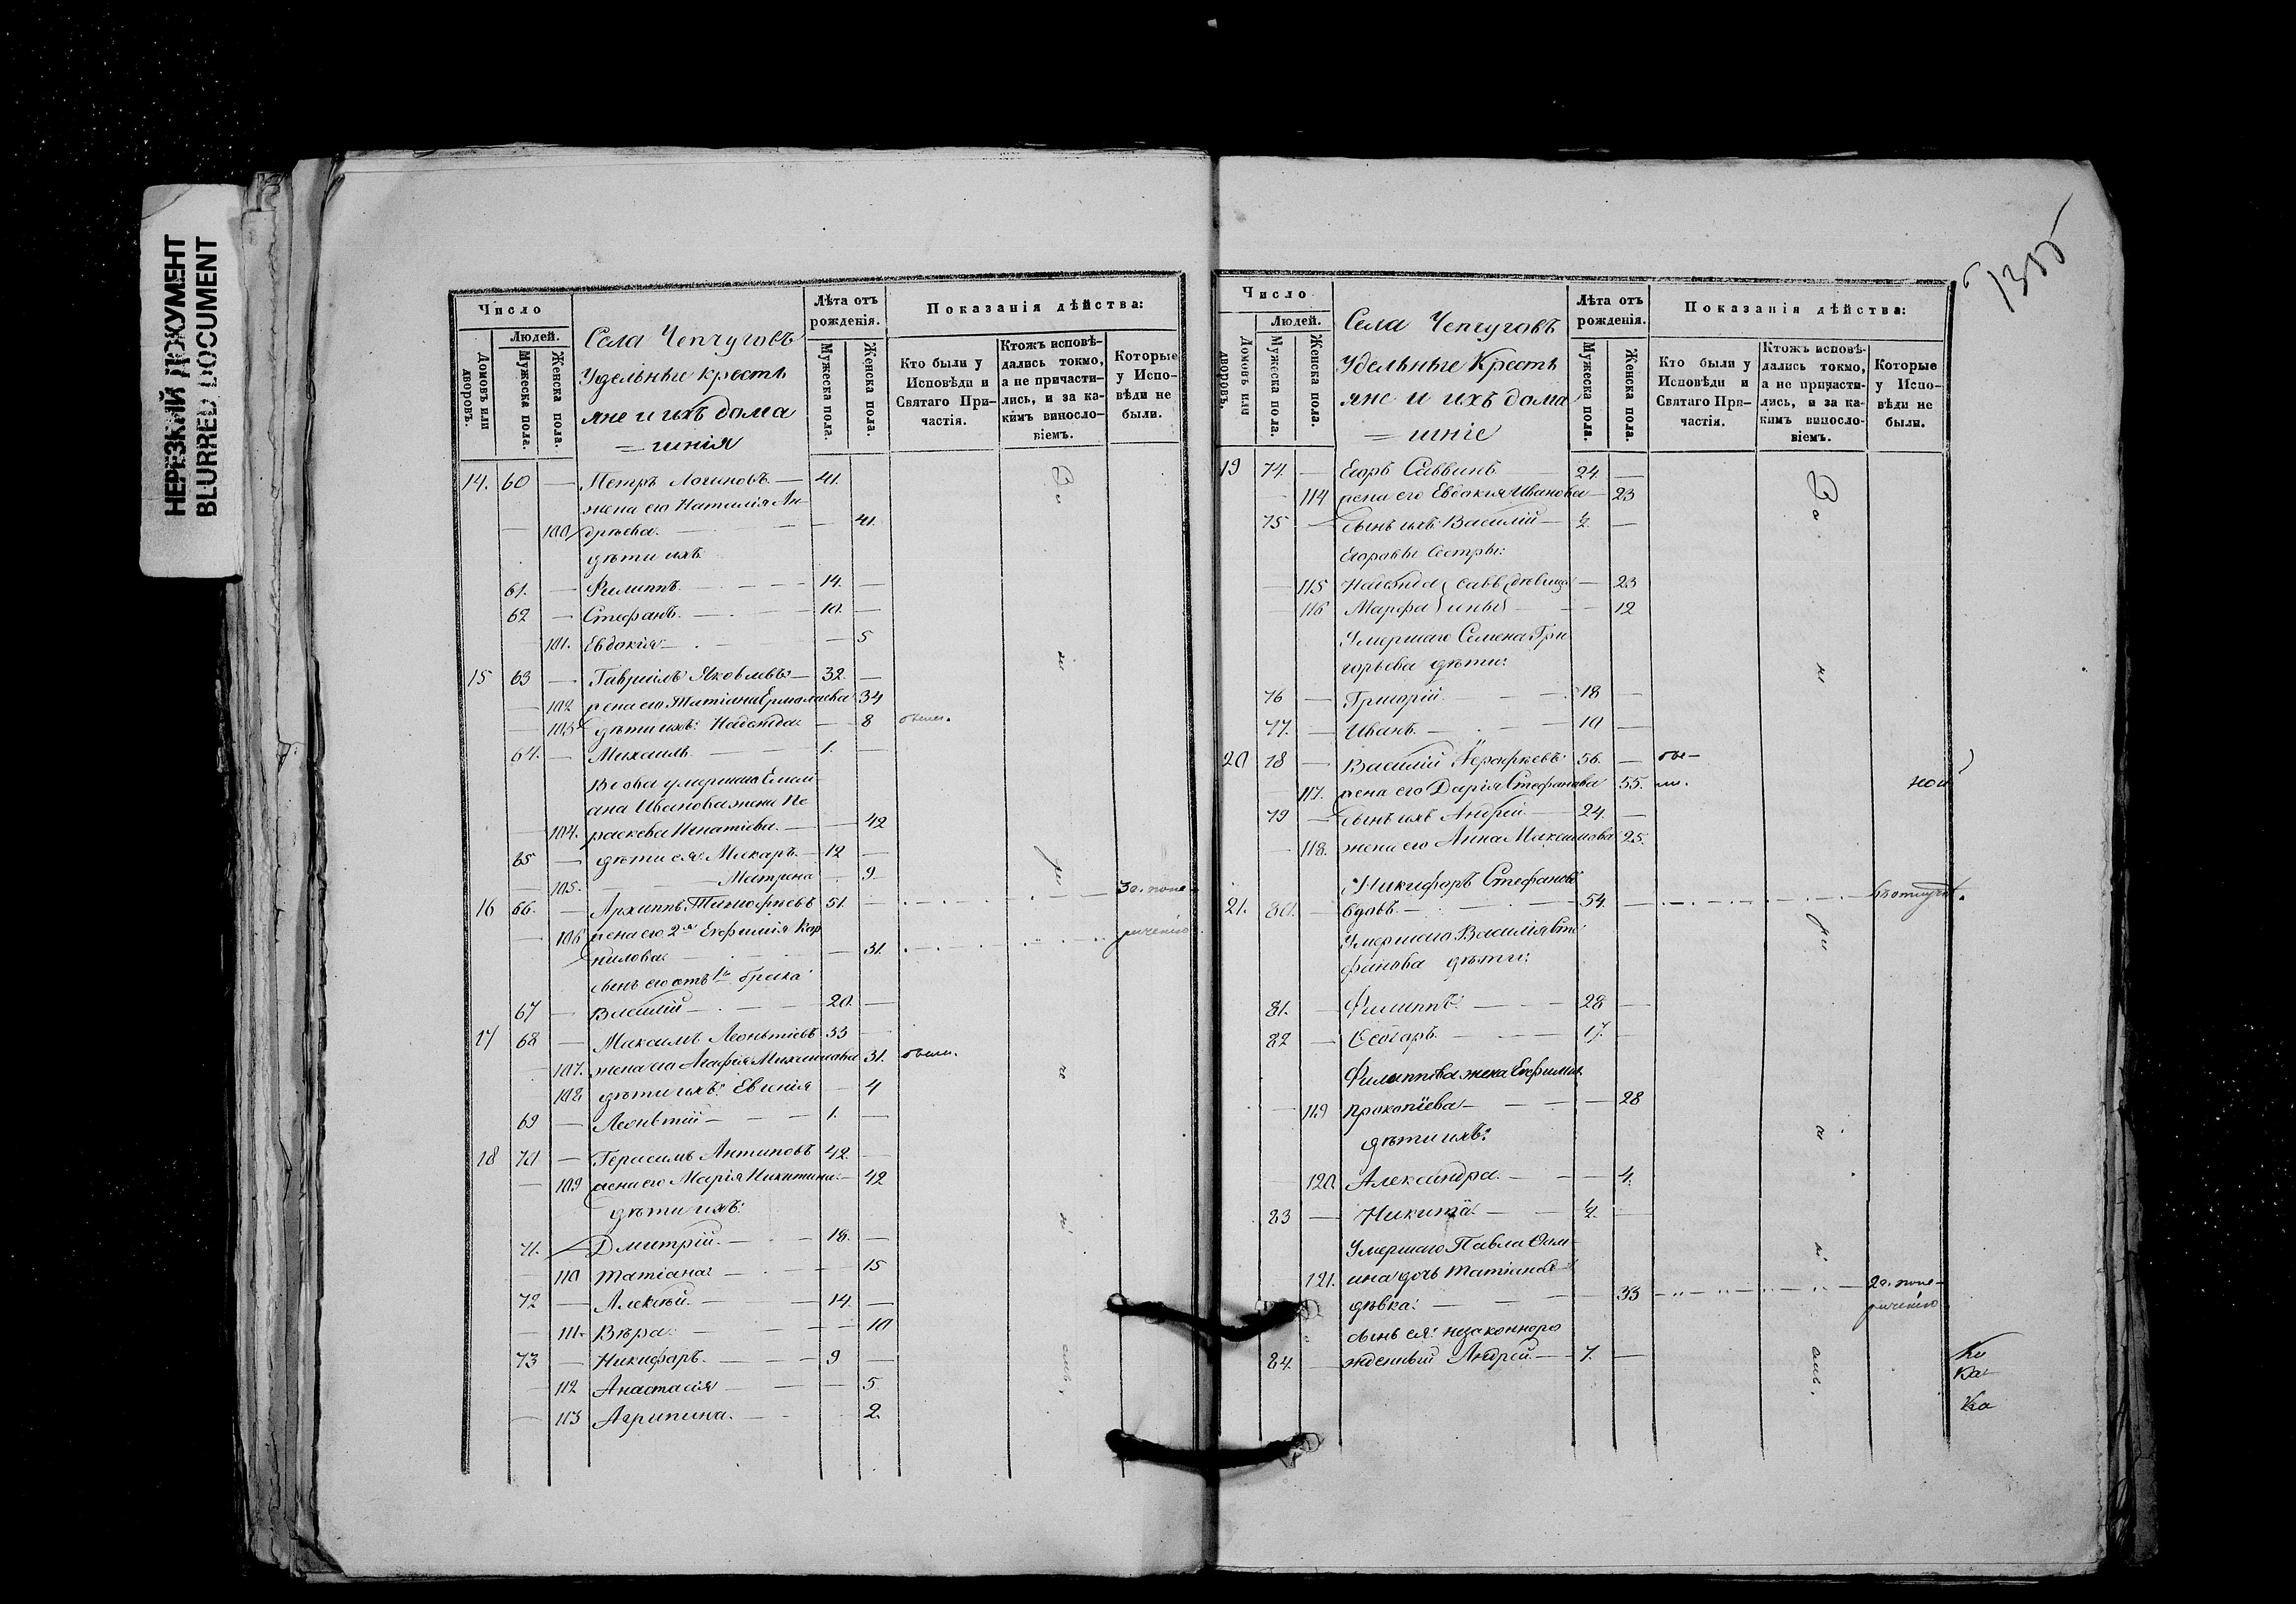 НЕРЕЗКИЙ ДОКУМЕНТ
BLURRED DOCUMENT
Число
Людей.
Домовъ или дворовъ.
Мужеска пола.
Женска пола.
Села Чепчуговъ
Удельные кресть
яне и ихъ дома
=шнія
Лѣта отъ рожденія.
Мужеска пола.
Женска пола.
Показанія дѣйства:
Кто были у Исповѣди и Святаго Причастія.
Ктожъ исповѣдались токмо, а не причастились, и за какимъ винословіемъ.
Которые у Исповѣди не были.
14. 60 — Петръ Логиновъ — 41.
жена его Наталія Ан-
— 100 дрѣева. — — 41.
дѣти ихъ
61. — Филиппъ. — — 14. —
62 — Стефанъ. — — 10. —
101. Евдокія — — 5
15 63 — Гавріилъ Яковлевъ — 32. —
— 102 жена его Татіана Ермолаева 34
— 103 дѣти ихъ: Надежда. — 8 были.
64. — Михаилъ — — 1. —
Вдова умершаго Емели-
ана Иванова жена Па
— 104. раскева Игнатіева. — — 42
65 — дѣти ея: Макаръ. — 12 —
— 105. — Матрона — 9
16 66. — Архиппъ Тимофѣевъ 51. — За. нопе-
— 106 жена его 2я Евфимія Кор
нилова — — 31. рченію
сынъ его отъ 1го брака
67 — Василій — — 20. —
17 68 — Максимъ Леонтіевъ 33 —
— 107. жена его Агафія Михаилова 31. были.
108 дѣти ихъ: Евгенія — 4
69 — Леонтій — — 1. —
18 70 — Герасимъ Антиповъ 42. —
— 109 жена его Марія Никитина. — 42
дѣти ихъ:
71. — Дмитрій. — — 18. —
— 110 Татіана: — — 15
72 — Алексѣй. — — 14. —
— 111. Вѣра: — — 10
73 — Никифоръ. — — 9 —
— 112 Анастасія — — 5
— 113 Агрипина. — 2.
135
Число
Людей.
Домовъ или дворовъ.
Мужеска пола.
Женска пола.
Села Чепчуговъ
Удельные Кресть
яне и ихъ дома
=шніе
Лѣта отъ рожденія.
Мужеска пола.
Женска пола.
Показанія дѣйства:
Кто были у Исповѣди и Святаго Причастія.
Ктожъ исповѣдались токмо, а не причастились, и за какимъ винословіемъ.
Которые у Исповѣди не были.
19 74. — Егоръ Саввинъ — 24. —
— 114 жена его Евдокія Иванова — 23
75 — сынъ ихъ Василій — ½. —
Егоровы сестры:
— 115 Надежда Савв дѣвица — 23
— 116 Марфа ины — — 12
Умершаго Семена Гри
горьева дѣти:
76 — Григорій — — 18 —
77. — Иванъ. — — 10 —
20 78 — Василій 56. — бы-
117. жена его Дарія Стефанова 55. ли.
79 — сынъ ихъ Андрей — 24. —
— 118. жена его Анна Максимова 25.
Никифоръ Стефановъ
21. 80. — вдовъ. — — 54. — въ отлучкѣ.
Умершаго Василія Сте
фанова дѣти:
81. — Филиппъ. — — 28 —
82 — — — 17. —
Филиппова жена Евфимія
— 119 Прокопіева — — 28
дѣти ихъ:
120 Александра. — — 4.
83 — Никита. — — ½. —
Умершаго Павла
121. ина дочь Татіана
дѣвка: — — 33 — За. нопе-
рченію
сынъ ея: незаконноро
84. — жденный Андрей. — 7. —
ной
Ка